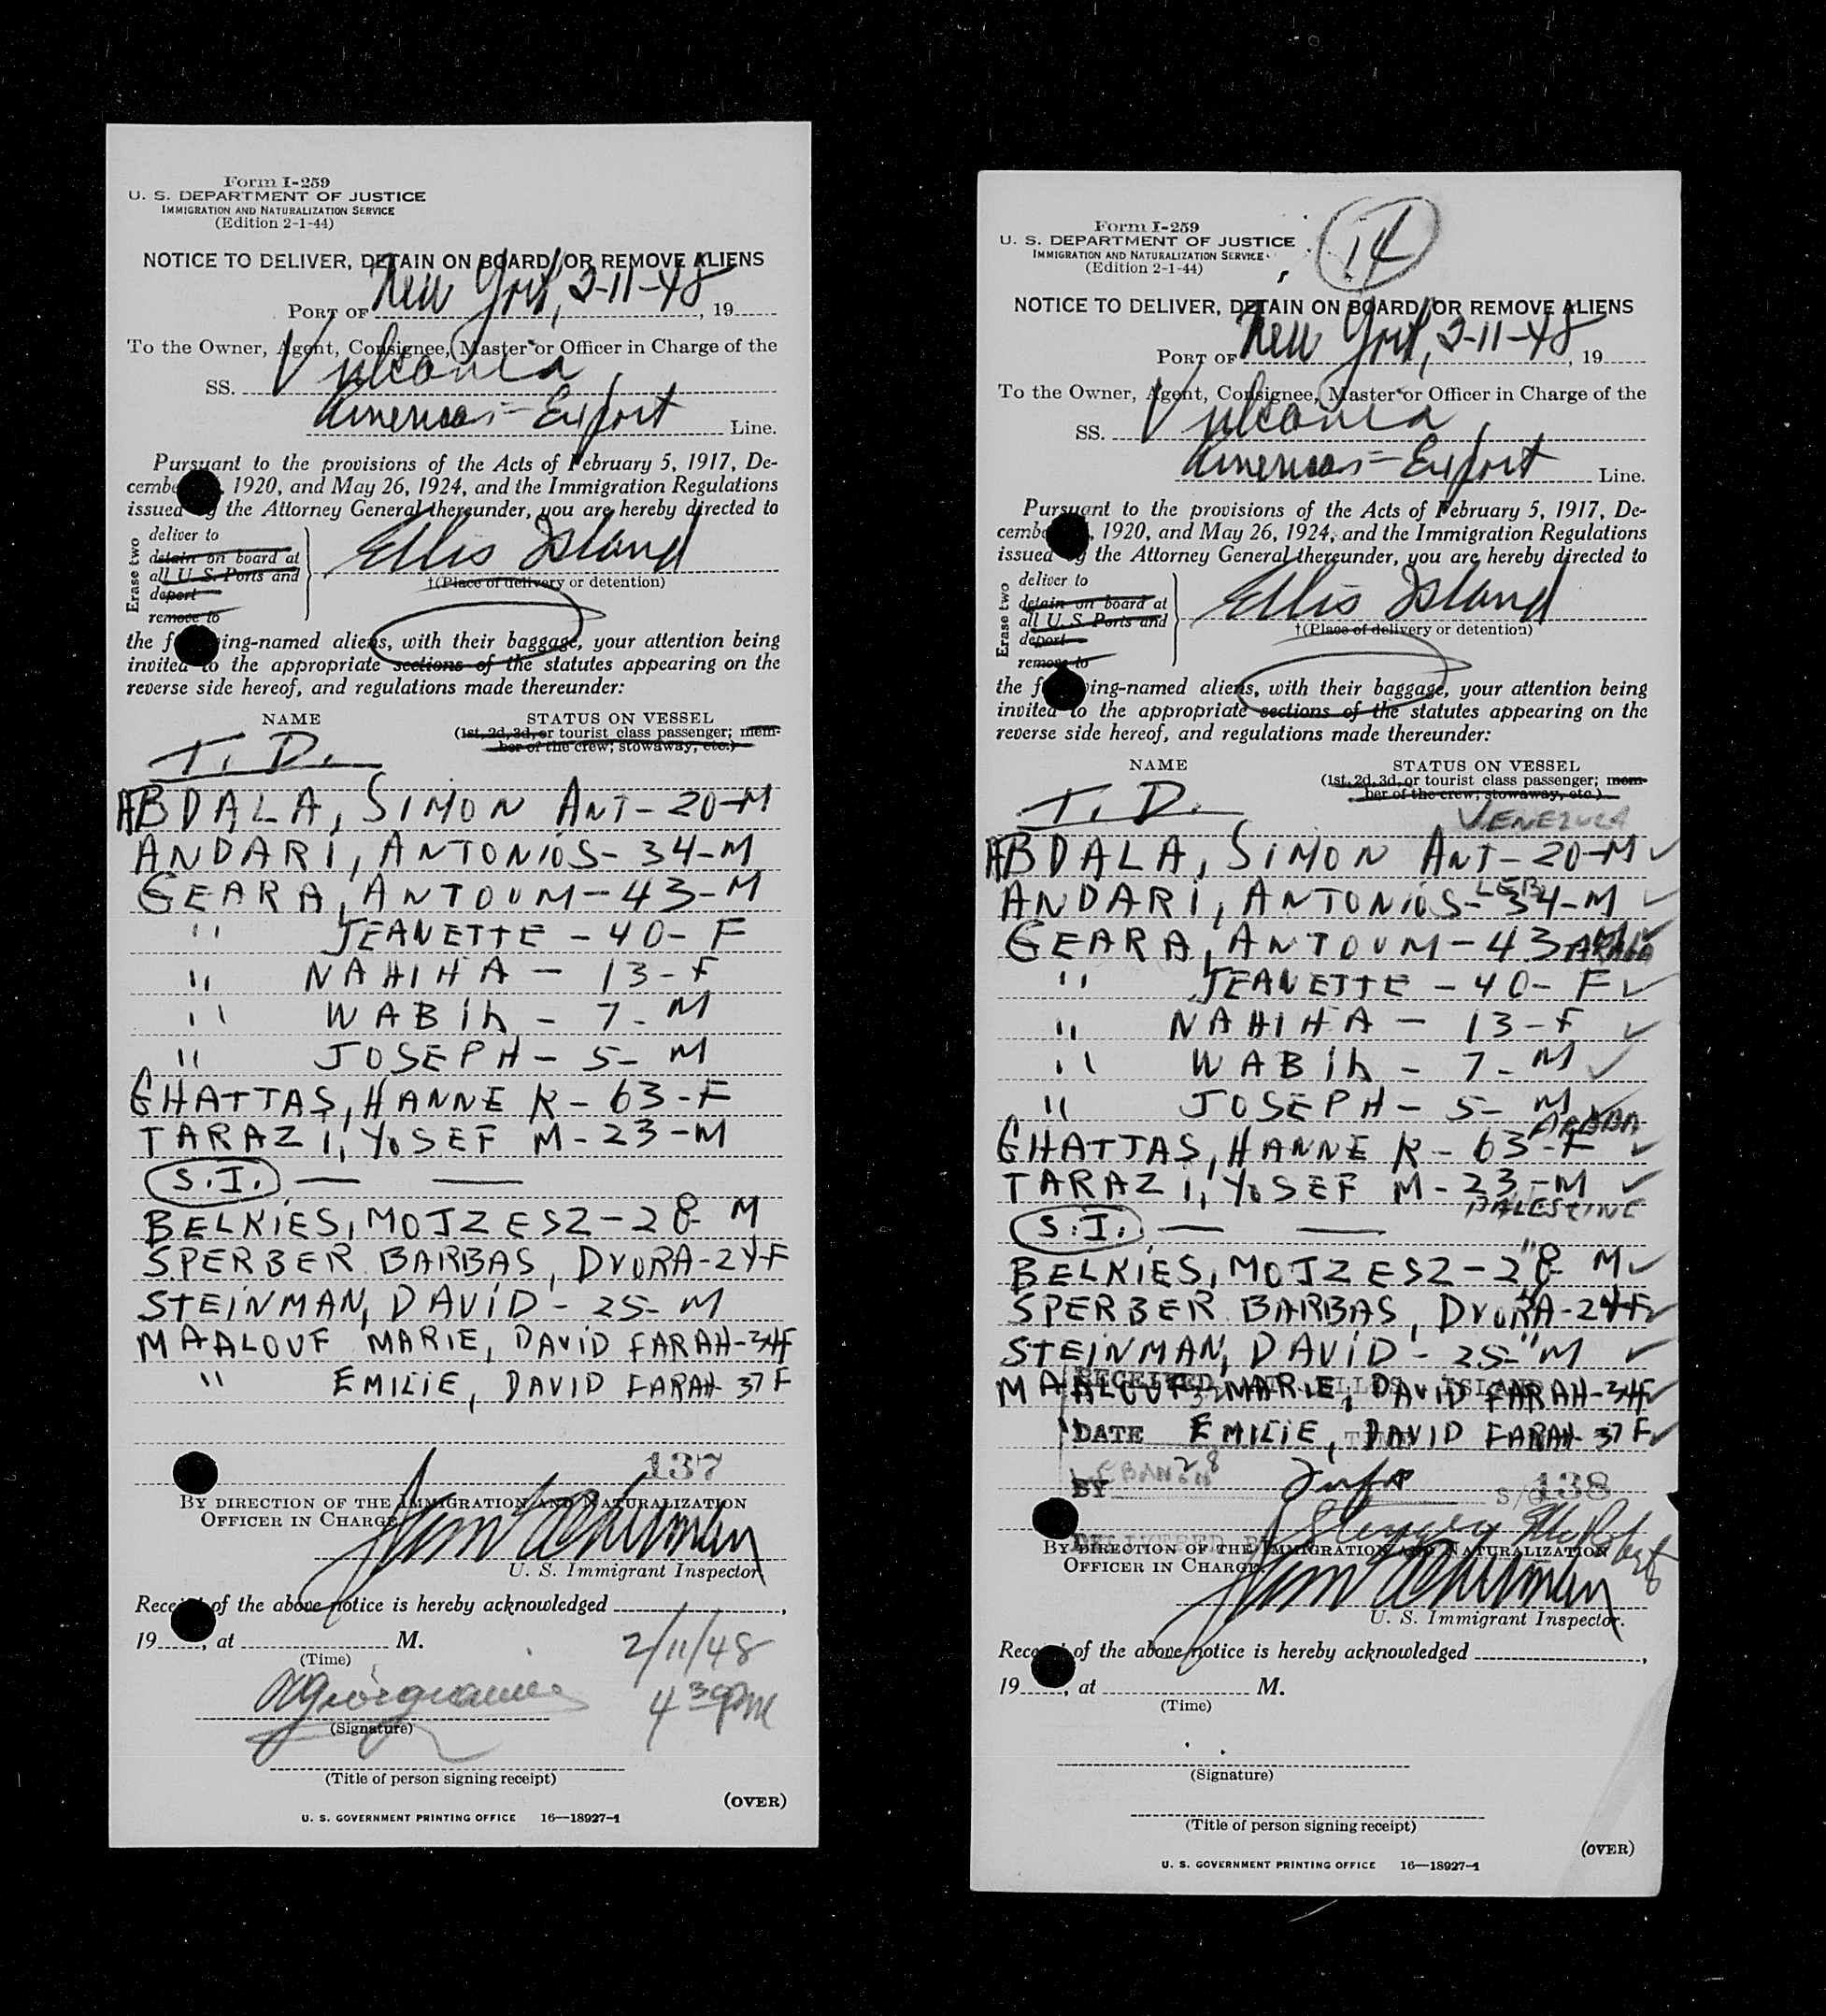 Form I-259
U. S. DEPARTMENT OF JUSTICE
IMMIGRATION AND NATURALIZATION SERVICE
(Edition 2-1-44)
NOTICE TO DELIVER, DETAIN ON BOARD, OR REMOVE ALIENS
PORT OF New York, 2-11-48, 19
To the Owner, Agent, Consignee, Master or Officer in Charge of the
SS. Vulcania
American-Export Line.
Pursuant to the provisions of the Acts of February 5, 1917, De-
cembe , 1920, and May 26, 1924, and the Immigration Regulations
issued by the Attorney General thereunder, you are hereby directed to
Erase two
deliver to
detain on board at
all U. S. Ports and
deport
remove to
Ellis Island
†(Place of delivery or detention)
the f ing-named aliens, with their baggage, your attention being
invited to the appropriate sections of the statutes appearing on the
reverse side hereof, and regulations made thereunder:
NAME STATUS ON VESSEL
(1st, 2d, 3d, or tourist class passenger; mem-
ber of the crew; stowaway, etc.)
T. D.
ABDALA, SIMON ANT - 20-M
ANDARI, ANTONIOS - 34-M
GEARA, ANTOUM - 43-M
" JEANETTE - 40- F
" NAHIHA - 13-F
" WABIh - 7- M
" JOSEPH - 5- M
GHATTAS, HANNE K - 63-F
TARAZI, YOSEF M - 23-M
S.I. — —
BELKIES, MOJZESZ - 28 M
SPERBER BARBAS, DVORA-24-F
STEINMAN, DAVID - 25- M
MAALOUF MARIE, DAVID FARAH-34F
" EMILIE, DAVID FARAH 37 F
137
BY DIRECTION OF THE IMMIGRATION AND NATURALIZATION
OFFICER IN CHARGE
U. S. Immigrant Inspector.
Receipt of the above notice is hereby acknowledged ,
19 , at M.
(Time)
2/11/48
4 30 PM
(Signature)
(Title of person signing receipt)
(OVER)
U. S. GOVERNMENT PRINTING OFFICE 16—18927-1
14
Form I-259
U. S. DEPARTMENT OF JUSTICE
IMMIGRATION AND NATURALIZATION SERVICE
(Edition 2-1-44)
NOTICE TO DELIVER, DETAIN ON BOARD, OR REMOVE ALIENS
PORT OF New York, 2-11-48, 19
To the Owner, Agent, Consignee, Master or Officer in Charge of the
SS. Vulcania
American-Export Line.
Pursuant to the provisions of the Acts of February 5, 1917, De-
cembe , 1920, and May 26, 1924, and the Immigration Regulations
issued by the Attorney General thereunder, you are hereby directed to
Erase two
deliver to
detain on board at
all U. S. Ports and
deport
remove to
Ellis Island
†(Place of delivery or detention)
the f ing-named aliens, with their baggage, your attention being
invited to the appropriate sections of the statutes appearing on the
reverse side hereof, and regulations made thereunder:
NAME STATUS ON VESSEL
(1st, 2d, 3d, or tourist class passenger; mem-
ber of the crew; stowaway, etc.)
T. D.
VENEZULA
ABDALA, SIMON ANT - 20-M ✓
LEB
ANDARI, ANTONIOS - 34-M ✓
GEARA, ANTOUM - 43 ✓
" JEANETTE - 40- F ✓
" NAHIHA - 13-F ✓
" WABIh - 7- M ✓
" JOSEPH - 5- M ✓
GHATTAS, HANNE K - 63-F ✓
TARAZI, YOSEF M - 23-M ✓
PALESTINE
S.I. — —
BELKIES, MOJZESZ - 28 M ✓
SPERBER BARBAS, DVORA-24-F ✓
STEINMAN, DAVID - 25- M ✓
RECEIVED ELLIS ISLAND
MAALOUF MARIE, DAVID FARAH-34F ✓
DATE
" EMILIE, DAVID FARAH 37 F ✓
LEBANON
BY
138
DELIVERED BY
BY DIRECTION OF THE IMMIGRATION AND NATURALIZATION
OFFICER IN CHARGE.
U. S. Immigrant Inspector.
Receipt of the above notice is hereby acknowledged ,
19 , at M.
(Time)
(Signature)
(Title of person signing receipt)
(OVER)
U. S. GOVERNMENT PRINTING OFFICE 16—18927-1